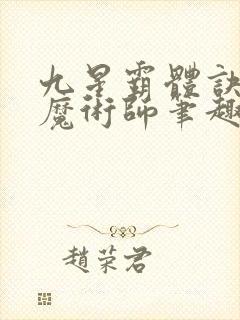 九星霸體訣
魔術師筆趣
趙荣君